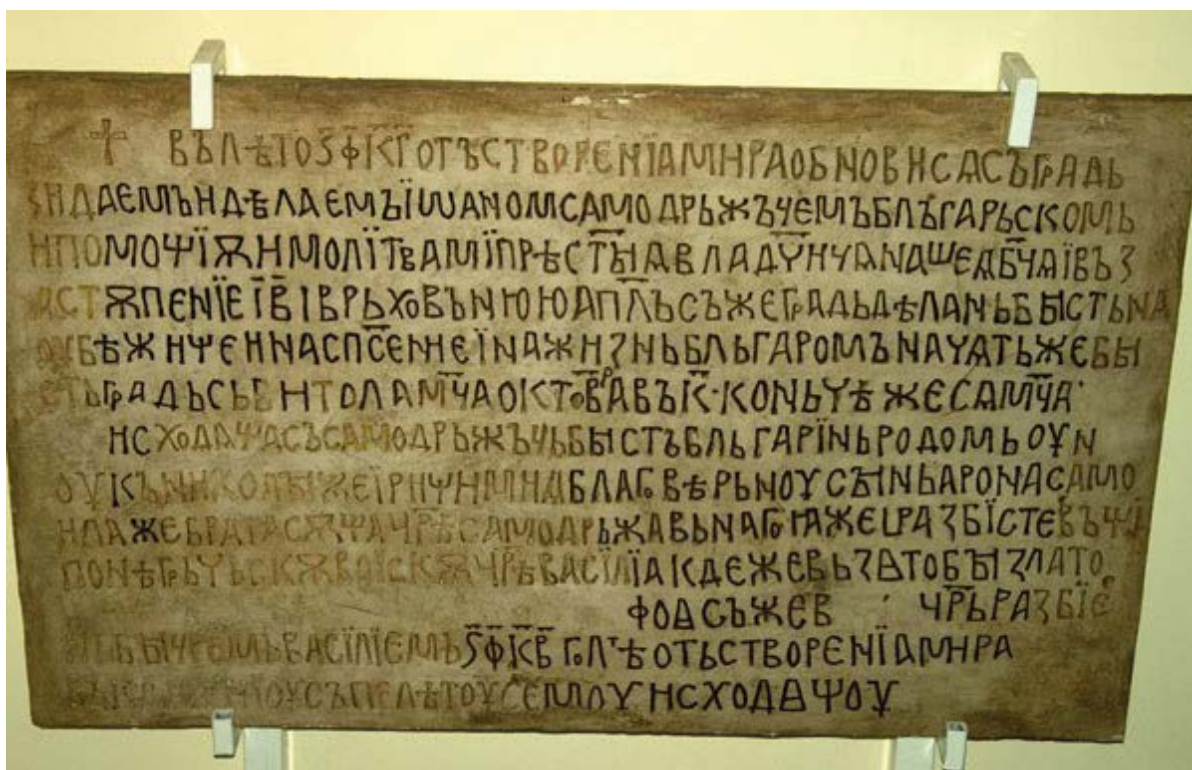 † ВЪЛѢТОЅ҃Ф҃К҃Г҃ОТЪСТВОРЄНЇАМНРАОБНОВНСАСЪГРАДЬ
ЗНДАЄМЪНДѢЛАЄМЪЇѠАНОМСАМОДРЬЖЪЧЄМЪБЛЪГАРЬСКОМЬ
НПОМОЩЇѪНМОЛІТВАМІПРѢСТ҃ЪІѦВЛАДꙊ҃НЧАНАШЄѦБ҃ЧѦІВЪЗ
АСТѪПЄНЇЄІ҃В҃ІВРЬХОВЪНЮЮАП҃ЛЪСЪЖЄГРАДЬДѢЛАНЬББЪІСТЬНА
ОУБѢЖНЩЄННАСПС҃ЄННЄЇНАЖНЗНЬБЛЬГАРОМЪНАЧАТЬЖЄБЪІ
СТЬГРАДЬСЬБНТОЛАМ҃ЧАОКТОВ҃РАВЪК҃·КОНЬЧѢЖЄСАМ҃ЧА·
НСХОДАЩАСЪСАМОДРЬЖЪЧЬБЪІСТЪБЛЬГАРЇНЬРОДОМЬОУН
ОУКЪННКОЛЪІЖЄЇРНѰНМНДБЛАГОВѢРЬНОУСЪІНЬАРОНАСАМО
НЛАЖЄБРАТАСѪЩАЧР҃ѢСАМОДРЬЖАВЬНАГОꙖЖЄІРАЗБЇСТЄВЪЩІ
ПОНѢГРЬЧЬСКѪВОЇСКѪЧР҃ѢВАСІЛЇАКДЄЖЄВЬЗАТОБЪІЗЛАТО
ФОАСЪЖЄВ ЧР҃ЬРАЗБЇЄ
БЪІЧР҃ЄМЪВАСЇЛІЄМЬЅ҃Ф҃К҃В҃ГОЛѢОТЬСТВОРЄНЇАМНРА
ОУСЪПЄЛѢТОУСЄМОУНСХОДѦЩОУ